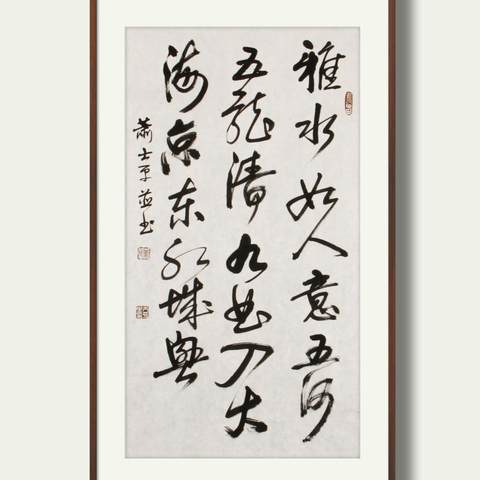 雅水如人意五河
五龍清九曲入大
海京东红城興
萧士平并书